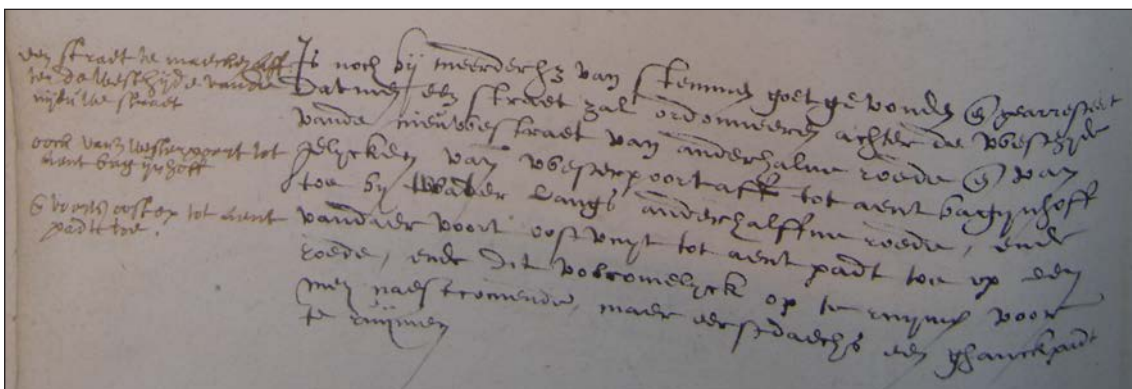 een straet te maecken aff
ter de westzyde vande
nyeuwe straet
oock van westerpoort tot
aent bagijnhoff
ende voorts oost op tot aent
padt toe.
Is noch by meerderheyt van stemmen goet gevonden ende gearresteert
Datmen een straet zal ordonneren achter de westzyde
vande nieuwestraet van anderhalve roede ende van
gelycken van westerpoort aff tot aent bagijnhoff
toe by twater langs anderhalffve roede, ende
vandaer voort oostwert tot aent padt toe op een
roede, ende dit volcomelyck op te ruymen voor
mey naestcomende, maer eerstdaechs een ganckpadt
te ruijmen